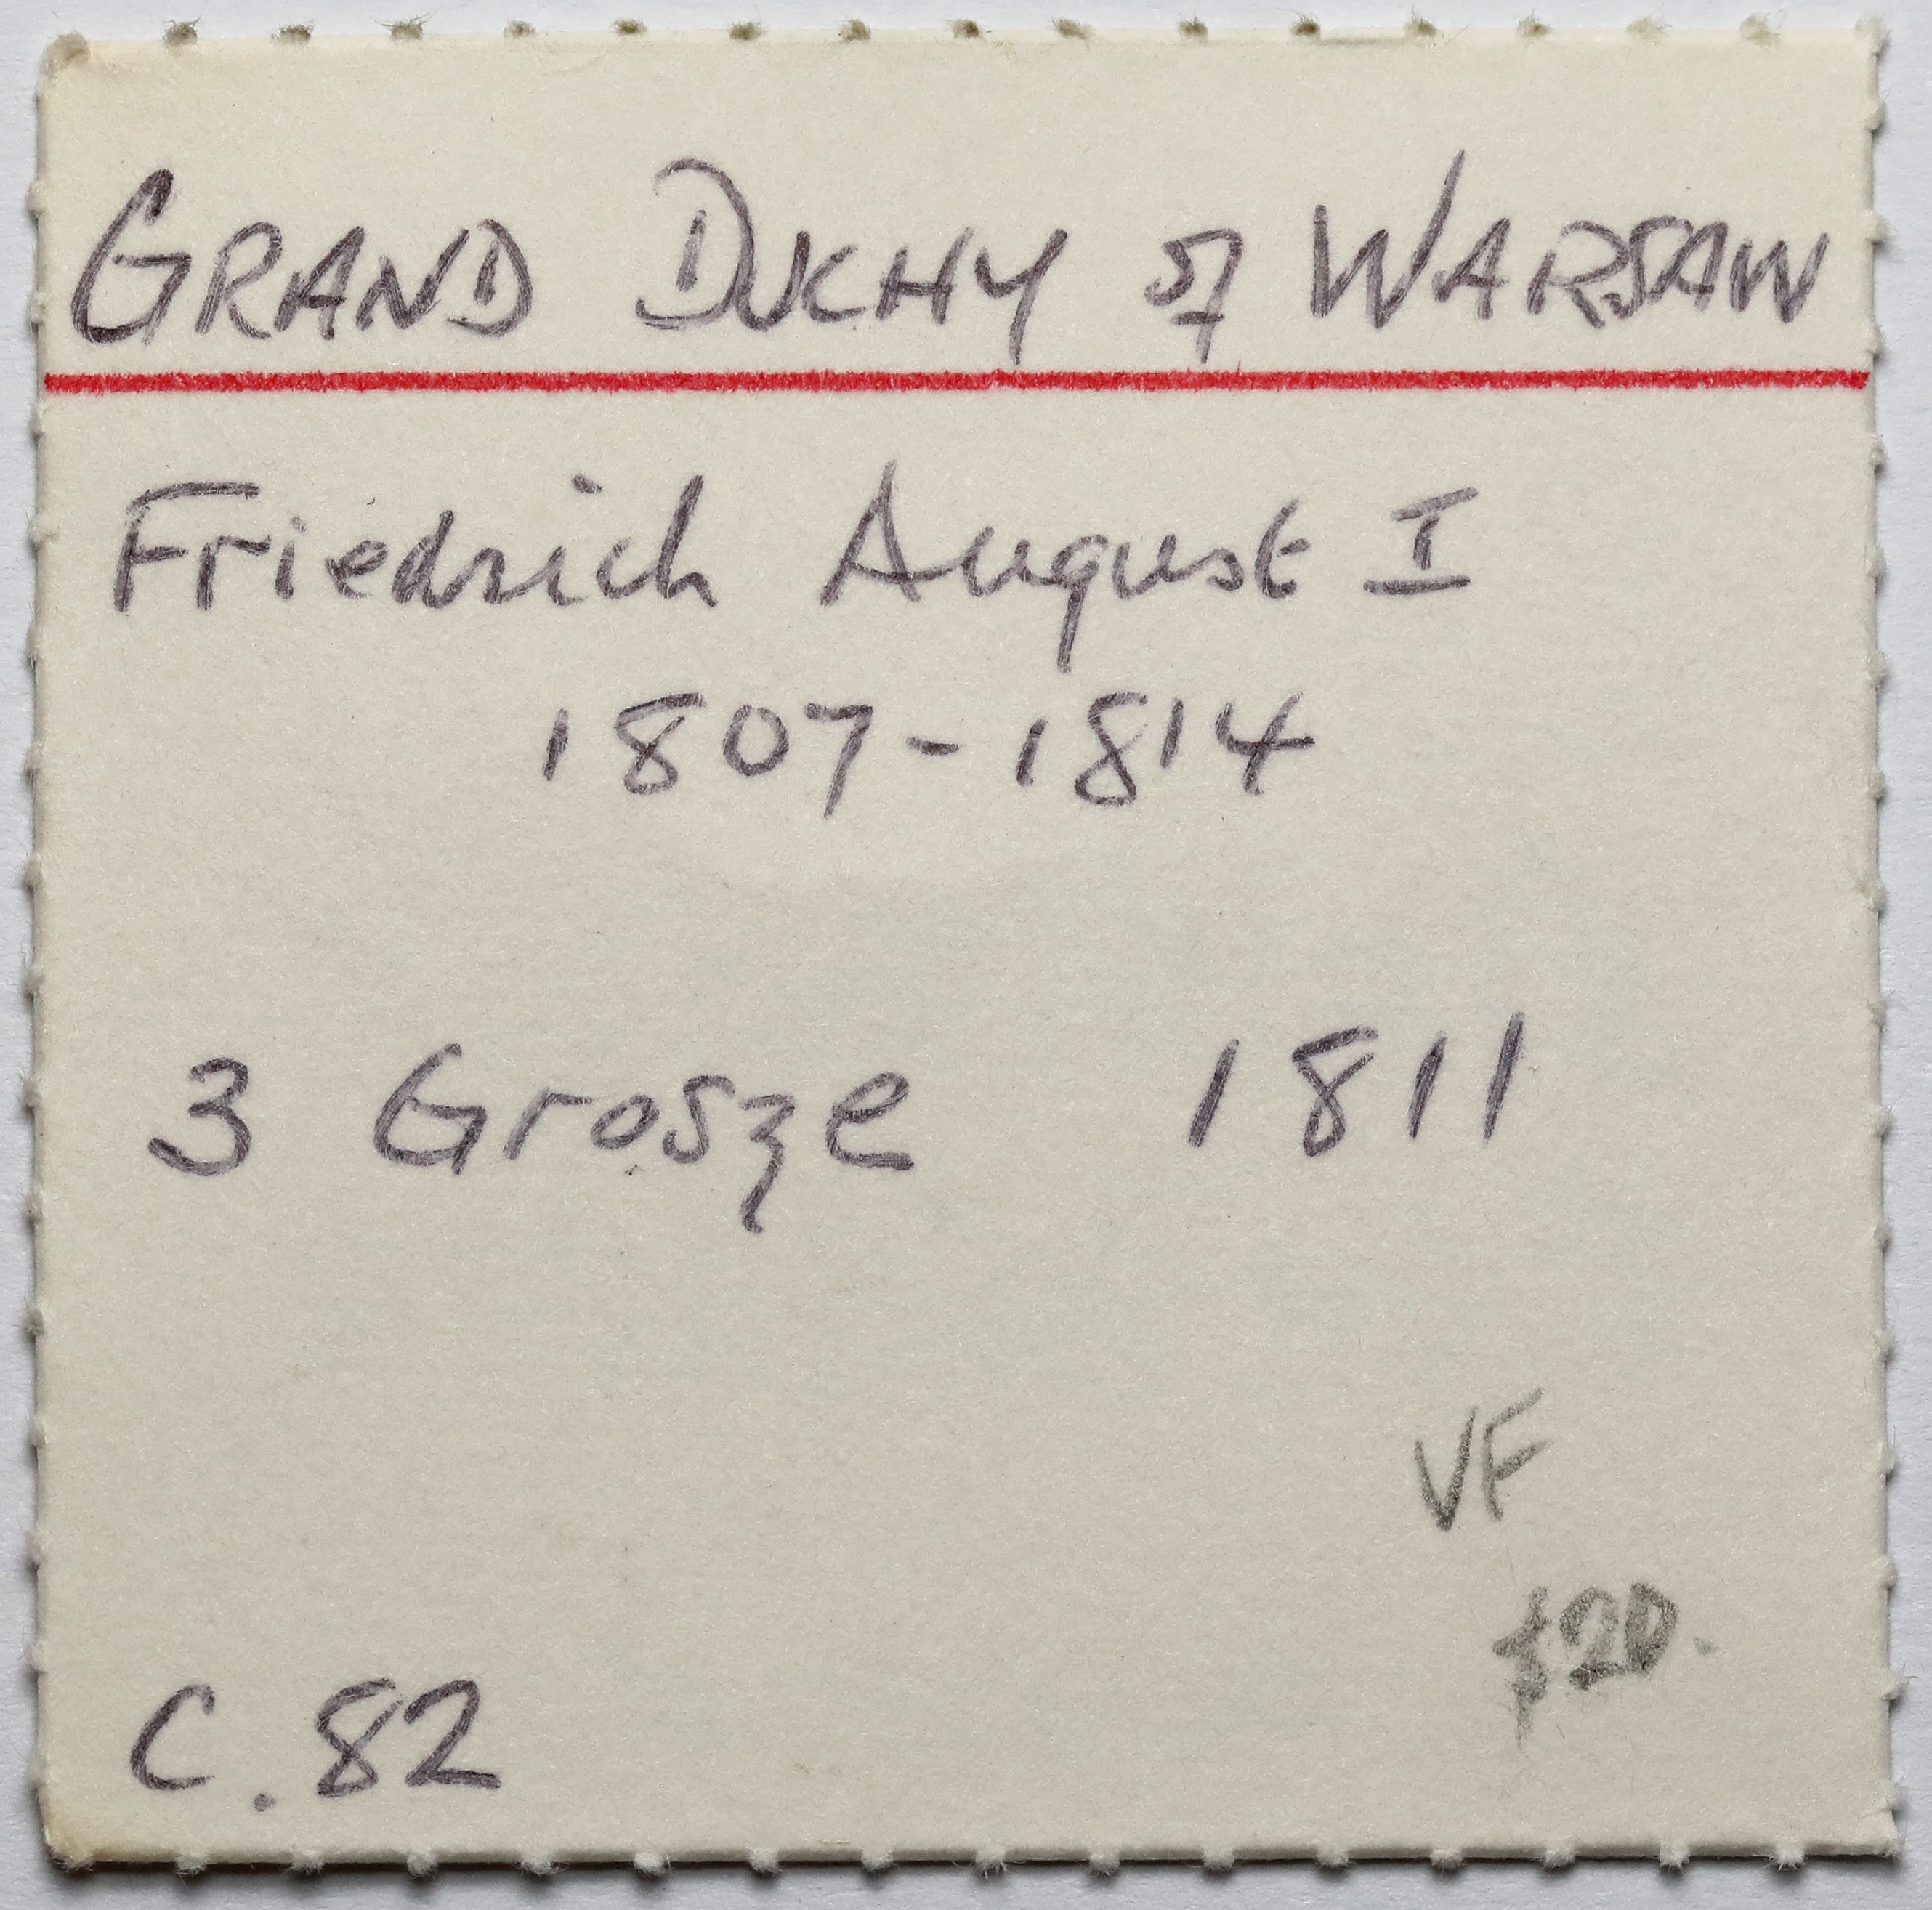 GRAND DUCHY of WARSAW
Friedrich August I
1807-1814
3 Grosze 1811
VF
$20.
C. 82